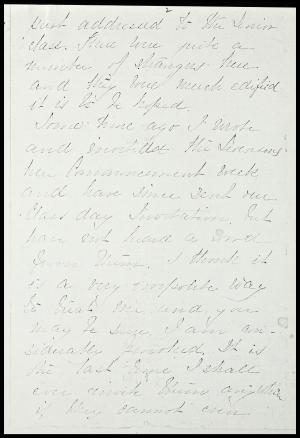 2
sent addressed to the Senior
class. There were quite a
number of strangers here
and they were much edified
it is to be hoped.
Some time ago I wrote
and invited the
here Commencement week
and have since sent our
Class day Invitation, but
have not heard a word
from them. I think it
is a very impolite way
to treat me and, you
may be sure, I am con-
siderably provoked. It is
the last time I shall
ever invite them anywhere
if they cannot even